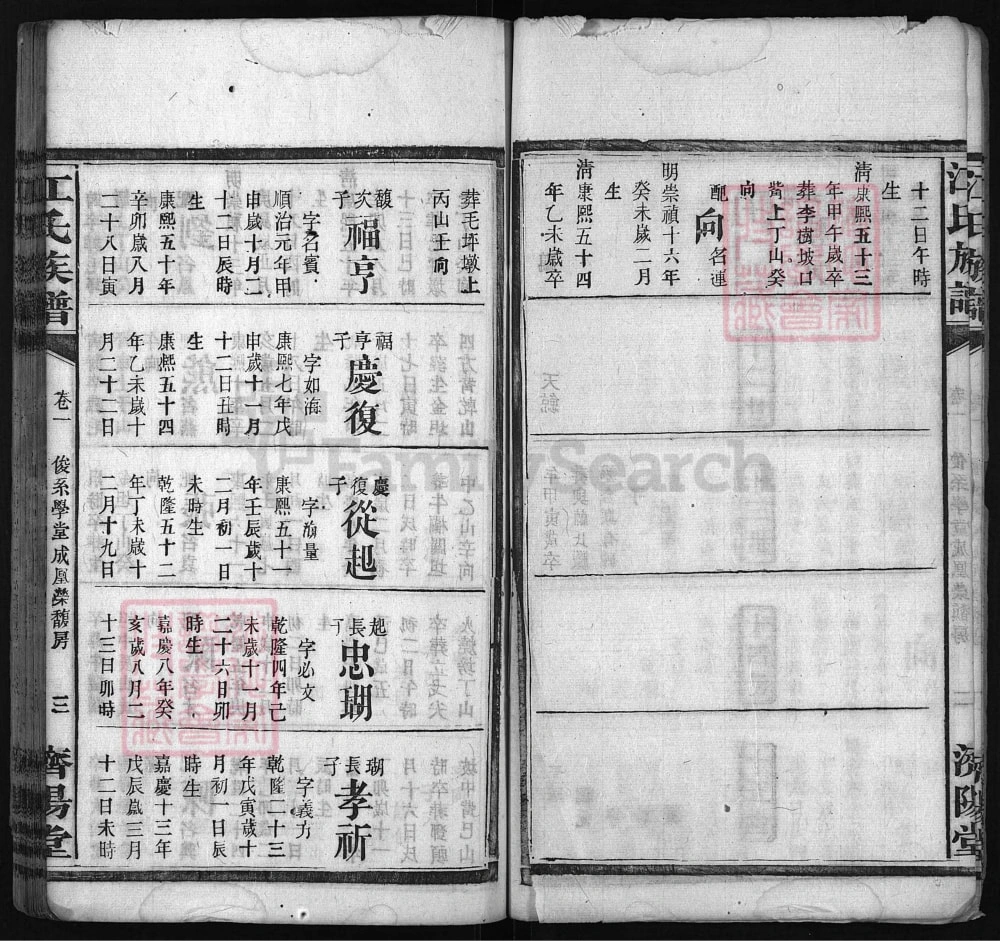 江氏族譜
濟陽堂
十二日午時
生
清康熙五十三
年甲午歲卒
葬李樹坡口
背上丁山癸
向
配向名連
明崇禎十六年
癸未歲一月
生
清康熙五十四
年乙未歲卒
葬毛坪墩上
丙山壬向
馥次子福亨
字名賓
順治元年甲
申歲十月二
十二日辰時
生
康熙五十年
辛卯歲八月
二十八日寅
福亨子慶復
字如海
康熙七年戊
申歲十月
十二日丑時
生
康熙五十四
年乙未歲十
月二十二日
慶復子從起
字瀚量
康熙五十一
年壬辰歲十
二月初一日
未時生
乾隆五十二
年丁未歲十
二月十九日
起長丁忠瑚
字必文
乾隆四年己
未歲十一月
二十六日卯
時生
嘉慶八年癸
亥歲八月二
十三日卯時
瑚長子孝祈
字義方
乾隆二十三
年戊寅歲十
月初一日辰
時生
嘉慶十三年
戊辰歲三月
十二日未時
江氏族譜
卷一
俊系學堂成凰榮馥房
三
濟陽堂
FamilySearch